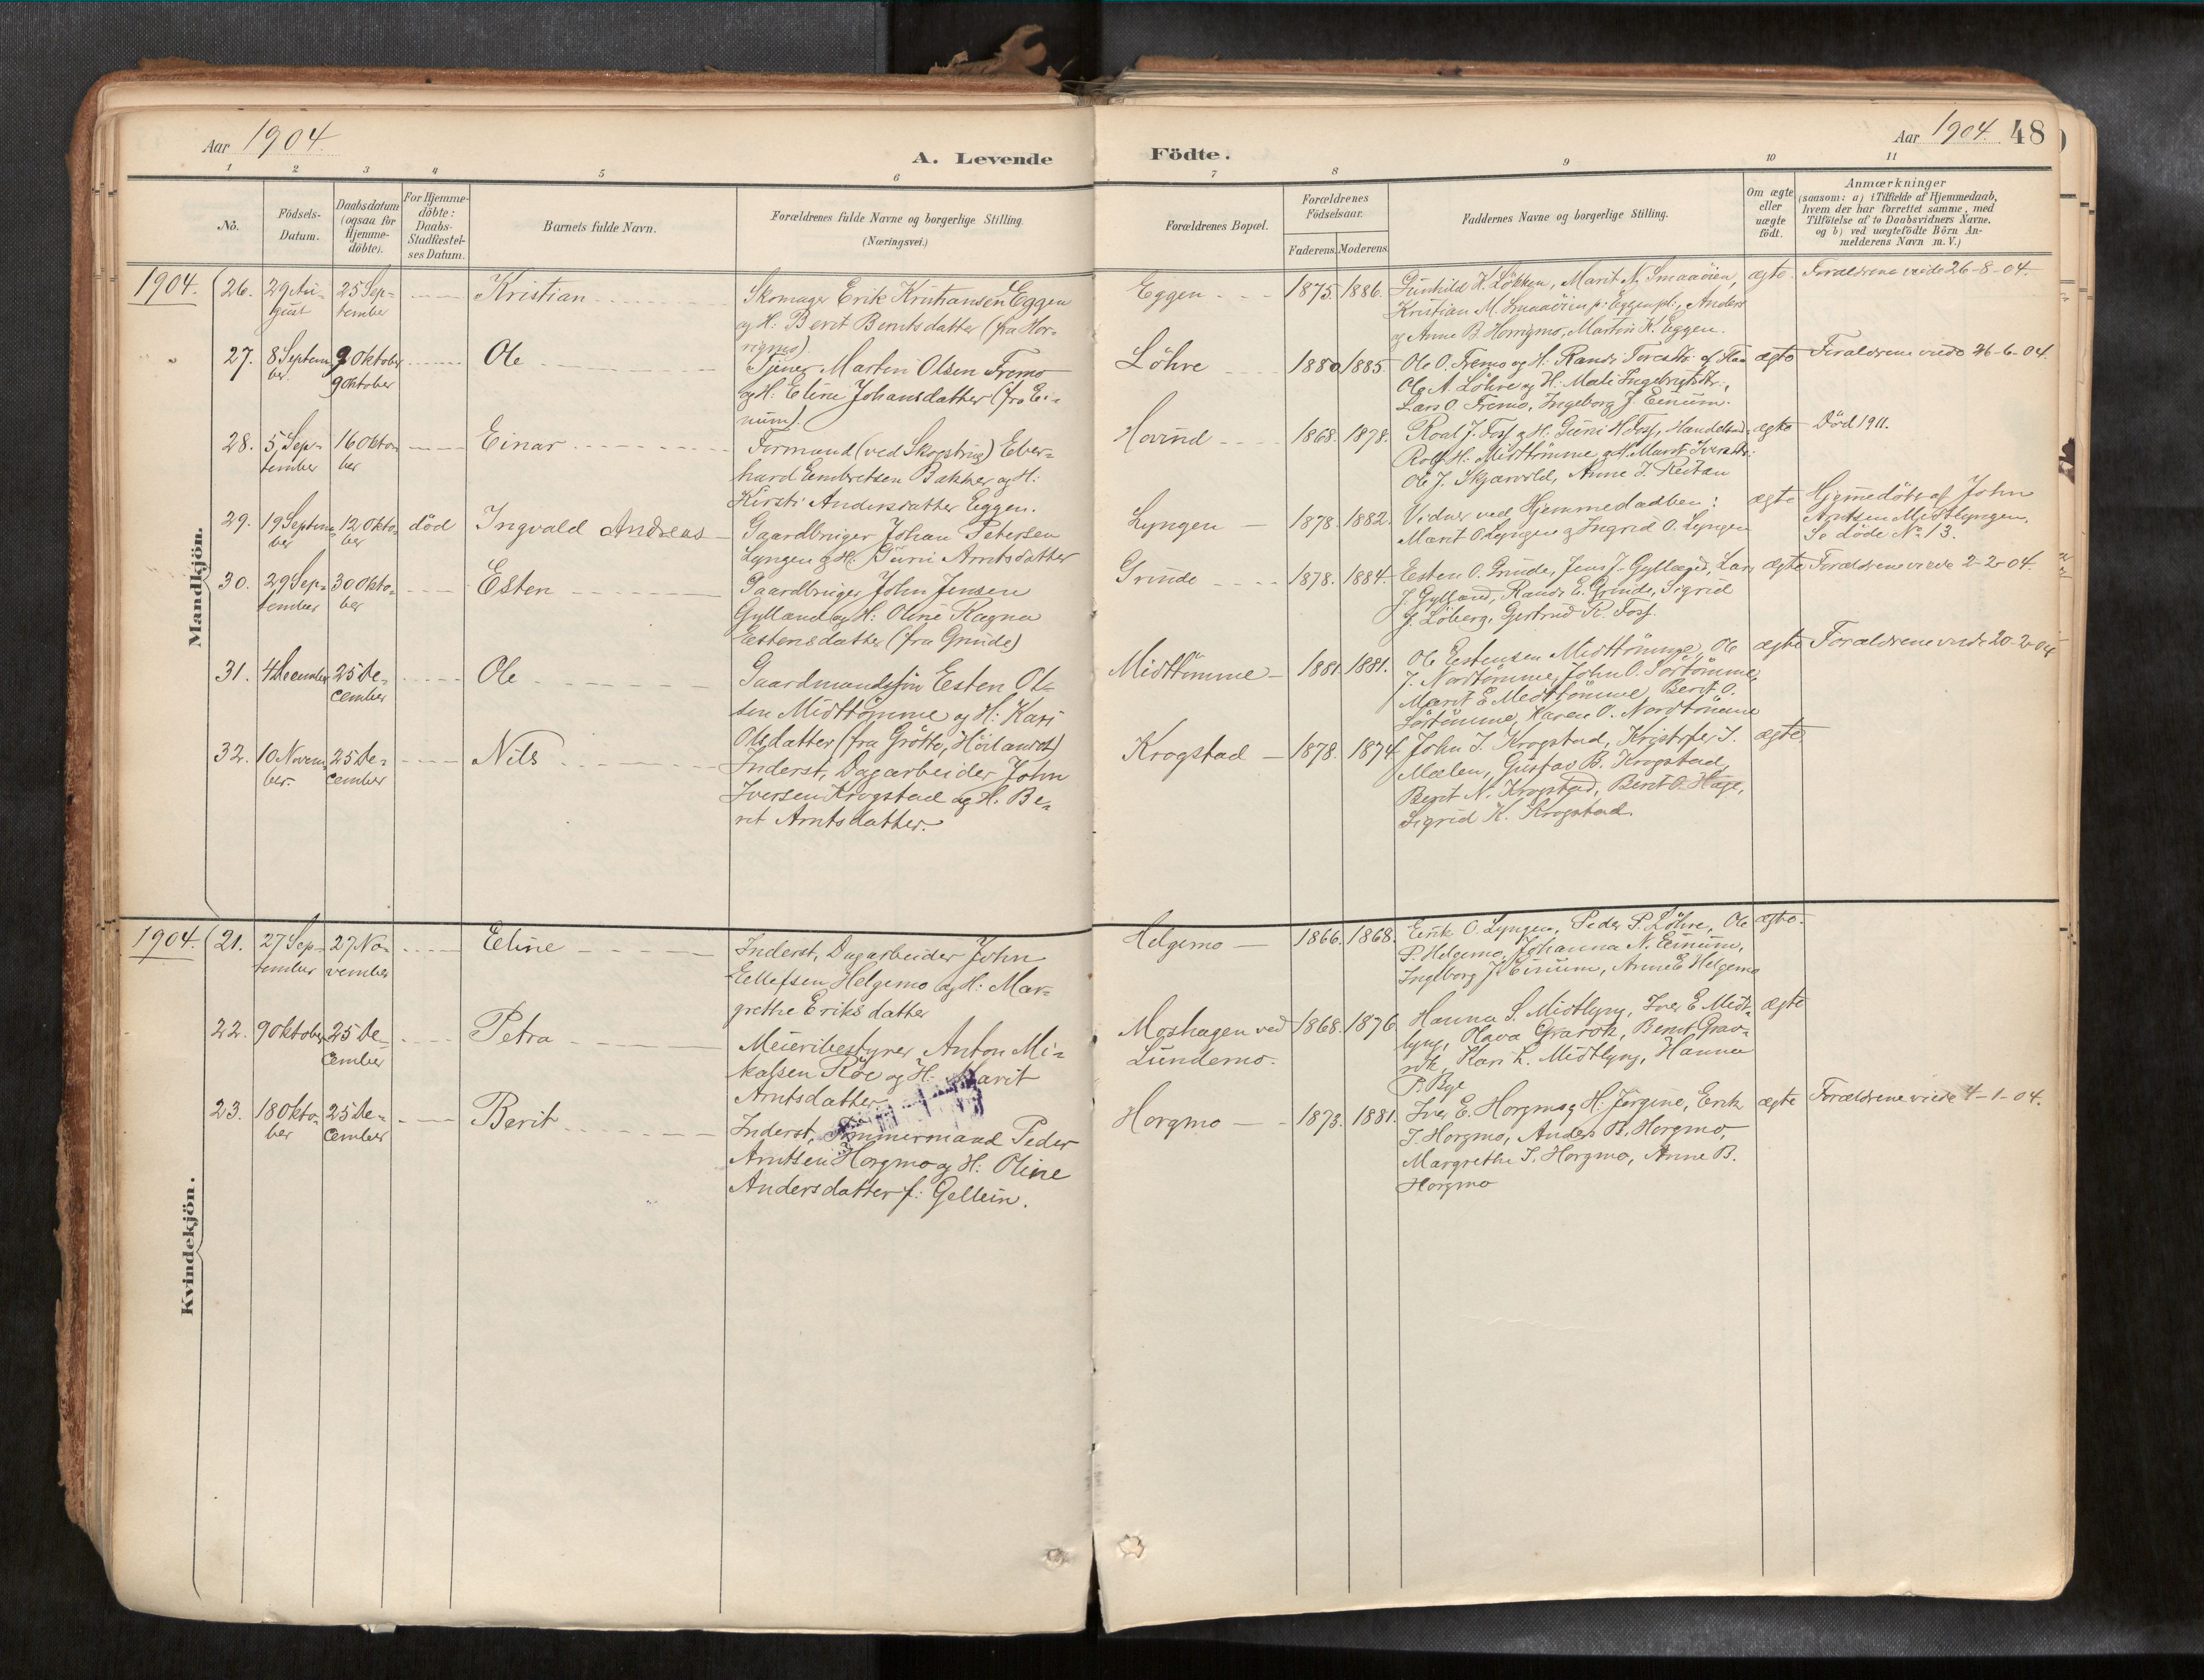 Aar 1904.
A. Levende
Födte.
Aar 1904. 48
1 2 3 4 5 6 7 8 9 10 11
No.
Födsels-
Datum.
Daabsdatum
(ogsaa for
Hjemme-
döbte).
For Hjemme-
döbte:
Daabs-
Stadfæstel-
ses Datum.
Barnets fulde Navn.
Forældrenes fulde Navne og borgerlige Stilling.
(Næringsvei.)
Forældrenes Bopæl.
Forældrenes
Födselsaar.
Faderens. Moderens.
Faddernes Navne og borgerlige Stilling.
Om ægte
eller
uægte
födt.
Anmærkninger
(saasom: a) i Tilfælde af Hjemmedaab,
hvem der har forrettet samme, med
Tilföielse af to Daabsvidners Navne,
og b) ved uægtefödte Börn An-
melderens Navn m. V.)
Mandkjön.
1904.
26.
29 Au-
gust
25 Sep-
tember
Kristian
Skomager Erik Kristiansen Eggen
og H: Berit Berntsdatter (fra Hor-
rigmo)
Eggen
1875. 1886.
Gunhild K. Løkken, Marit N. Smaaöien,
Kristian M. Smaaöien p: Eggen pl:, Anders
og Anne B. Horrigmo, Martin K. Eggen.
ægte.
Forældrene viede 26-8-04.
27.
8 Septem
ber.
9 Oktober
9 Oktober
Ole
Tjener Martin Olsen Fremo
og H: Eline Johansdatter (fra Ei-
num).
Löhre
1880 1885.
Ole O. Fremo og H: Randi
Ole A. Löhre og H: Mali Ingebrigtsdtr.,
Lars O. Fremo, Ingeborg J. Einum.
ægte
Forældrene viede 26-6-04.
28.
5 Sep-
tember
16 Okto-
ber
Einar
Formand (ved Skogstrig) Eber-
hard Embretsen Bakker og H:
Kirsti Andersdatter Eggen.
Hovind
1868. 1878.
Roal J. Foss og H: Guni H. Foss, Handelsmd.
Rolf H. Midttömme og H: Marit Iversdtr:
Ole J. Skjærvold, Anne J. Reitan
ægte
Död 1911.
29.
19 Septem-
ber
12 Okto-
ber
död
Ingvald Andreas
Gaardbruger Johan Petersen
Lyngen og H: Guri Arntsdatter
Lyngen
1878. 1882.
Vidner ved Hjemmedaaben:
Marit O Lyngen og Ingrid O. Lyngen
ægte
Hjemmedöbt af John
Arntsen Midtlyngen.
Se döde No 13.
30.
29 Sep-
tember
30 Okto-
ber
Esten
Gaardbruger John Jensen
Gylland og H: Oline Ragna
Estensdatter (fra Grinde)
Grinde
1878. 1884.
Esten O. Grinde, Jens J. Gylland, Lars
J. Gylland, Randi E. Grinde, Sigrid
J. Löberg, Gjertrud R. Foss.
ægte
Forældrene viede 2-2-04.
31.
4 December
25 De-
cember
Ole
Gaardmandssön Esten Ol-
sen Midttömme og H: Kari
Olsdatter (fra Grötte, Hölandet)
Midttömme
1881. 1881.
Ole Estensen Midttömme, Ole
J. Nordtömme, John O. Sörtömme,
Marit E Midttömme, Berit O.
Sörtömme, Karen O. Nordtömme
ægte
Forældrene viede 20-2-04
32.
10 Novem-
ber.
25 De-
cember
Nils
Inderst, Dagarbeider John
Iversen Krogstad og H. Be-
rit Arntsdatter.
Krogstad
1878. 1874.
John I. Krogstad, Kristofer I.
Mælen, Gustav B. Krogstad,
Berit N. Krogstad, Berit O. Hage,
Sigrid K. Krogstad.
ægte
Kvindekjön.
1904.
21.
27 Sep-
tember
27 No-
vember
Eline
Inderst, Dagarbeider John
Ellefsen Helgemo og H: Mar-
grethe Eriksdatter
Helgemo
1866. 1868.
Eirik O. Lyngen, Peder P. Löhre, Ole
P. Helgemo, Johanna N. Einum,
Ingeborg J. Einum, Anne E Helgemo
ægte.
22.
9 Oktober
25 De-
cember
Petra
Meieribestyrer Anton Mi-
kalsen Röe og H: Marit
Arntsdatter
Moshagen ved
Lundemo.
1868. 1876
Hanna S. Midtlyng, Iver E. Midt-
lyng, Olava Gravrok, Bernt Grav-
rok, Kari L. Midtlyng, Hanna
P. Bye
ægte
23.
18 Okto-
ber
25 De-
cember
Berit
Inderst, Tömmermand Peder
Arntsen Horgmo og H: Oline
Andersdatter f: Gellein.
Horgmo
1873. 1881.
Iver E. Horgmo og H. Jörgine, Erik
I. Horgmo, Anders B. Horgmo,
Margrethe I. Horgmo, Anne B.
Horgmo
ægte
Forældrene viede 4-1-04.